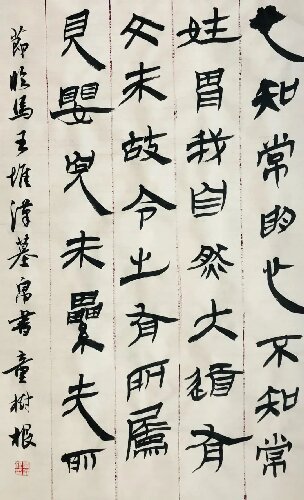 也知常明也不知常
姓胃我自然大道有
文未故令之有所屬
見嬰兒未纍夫所
節臨馬王堆漢墓帛書 童樹根